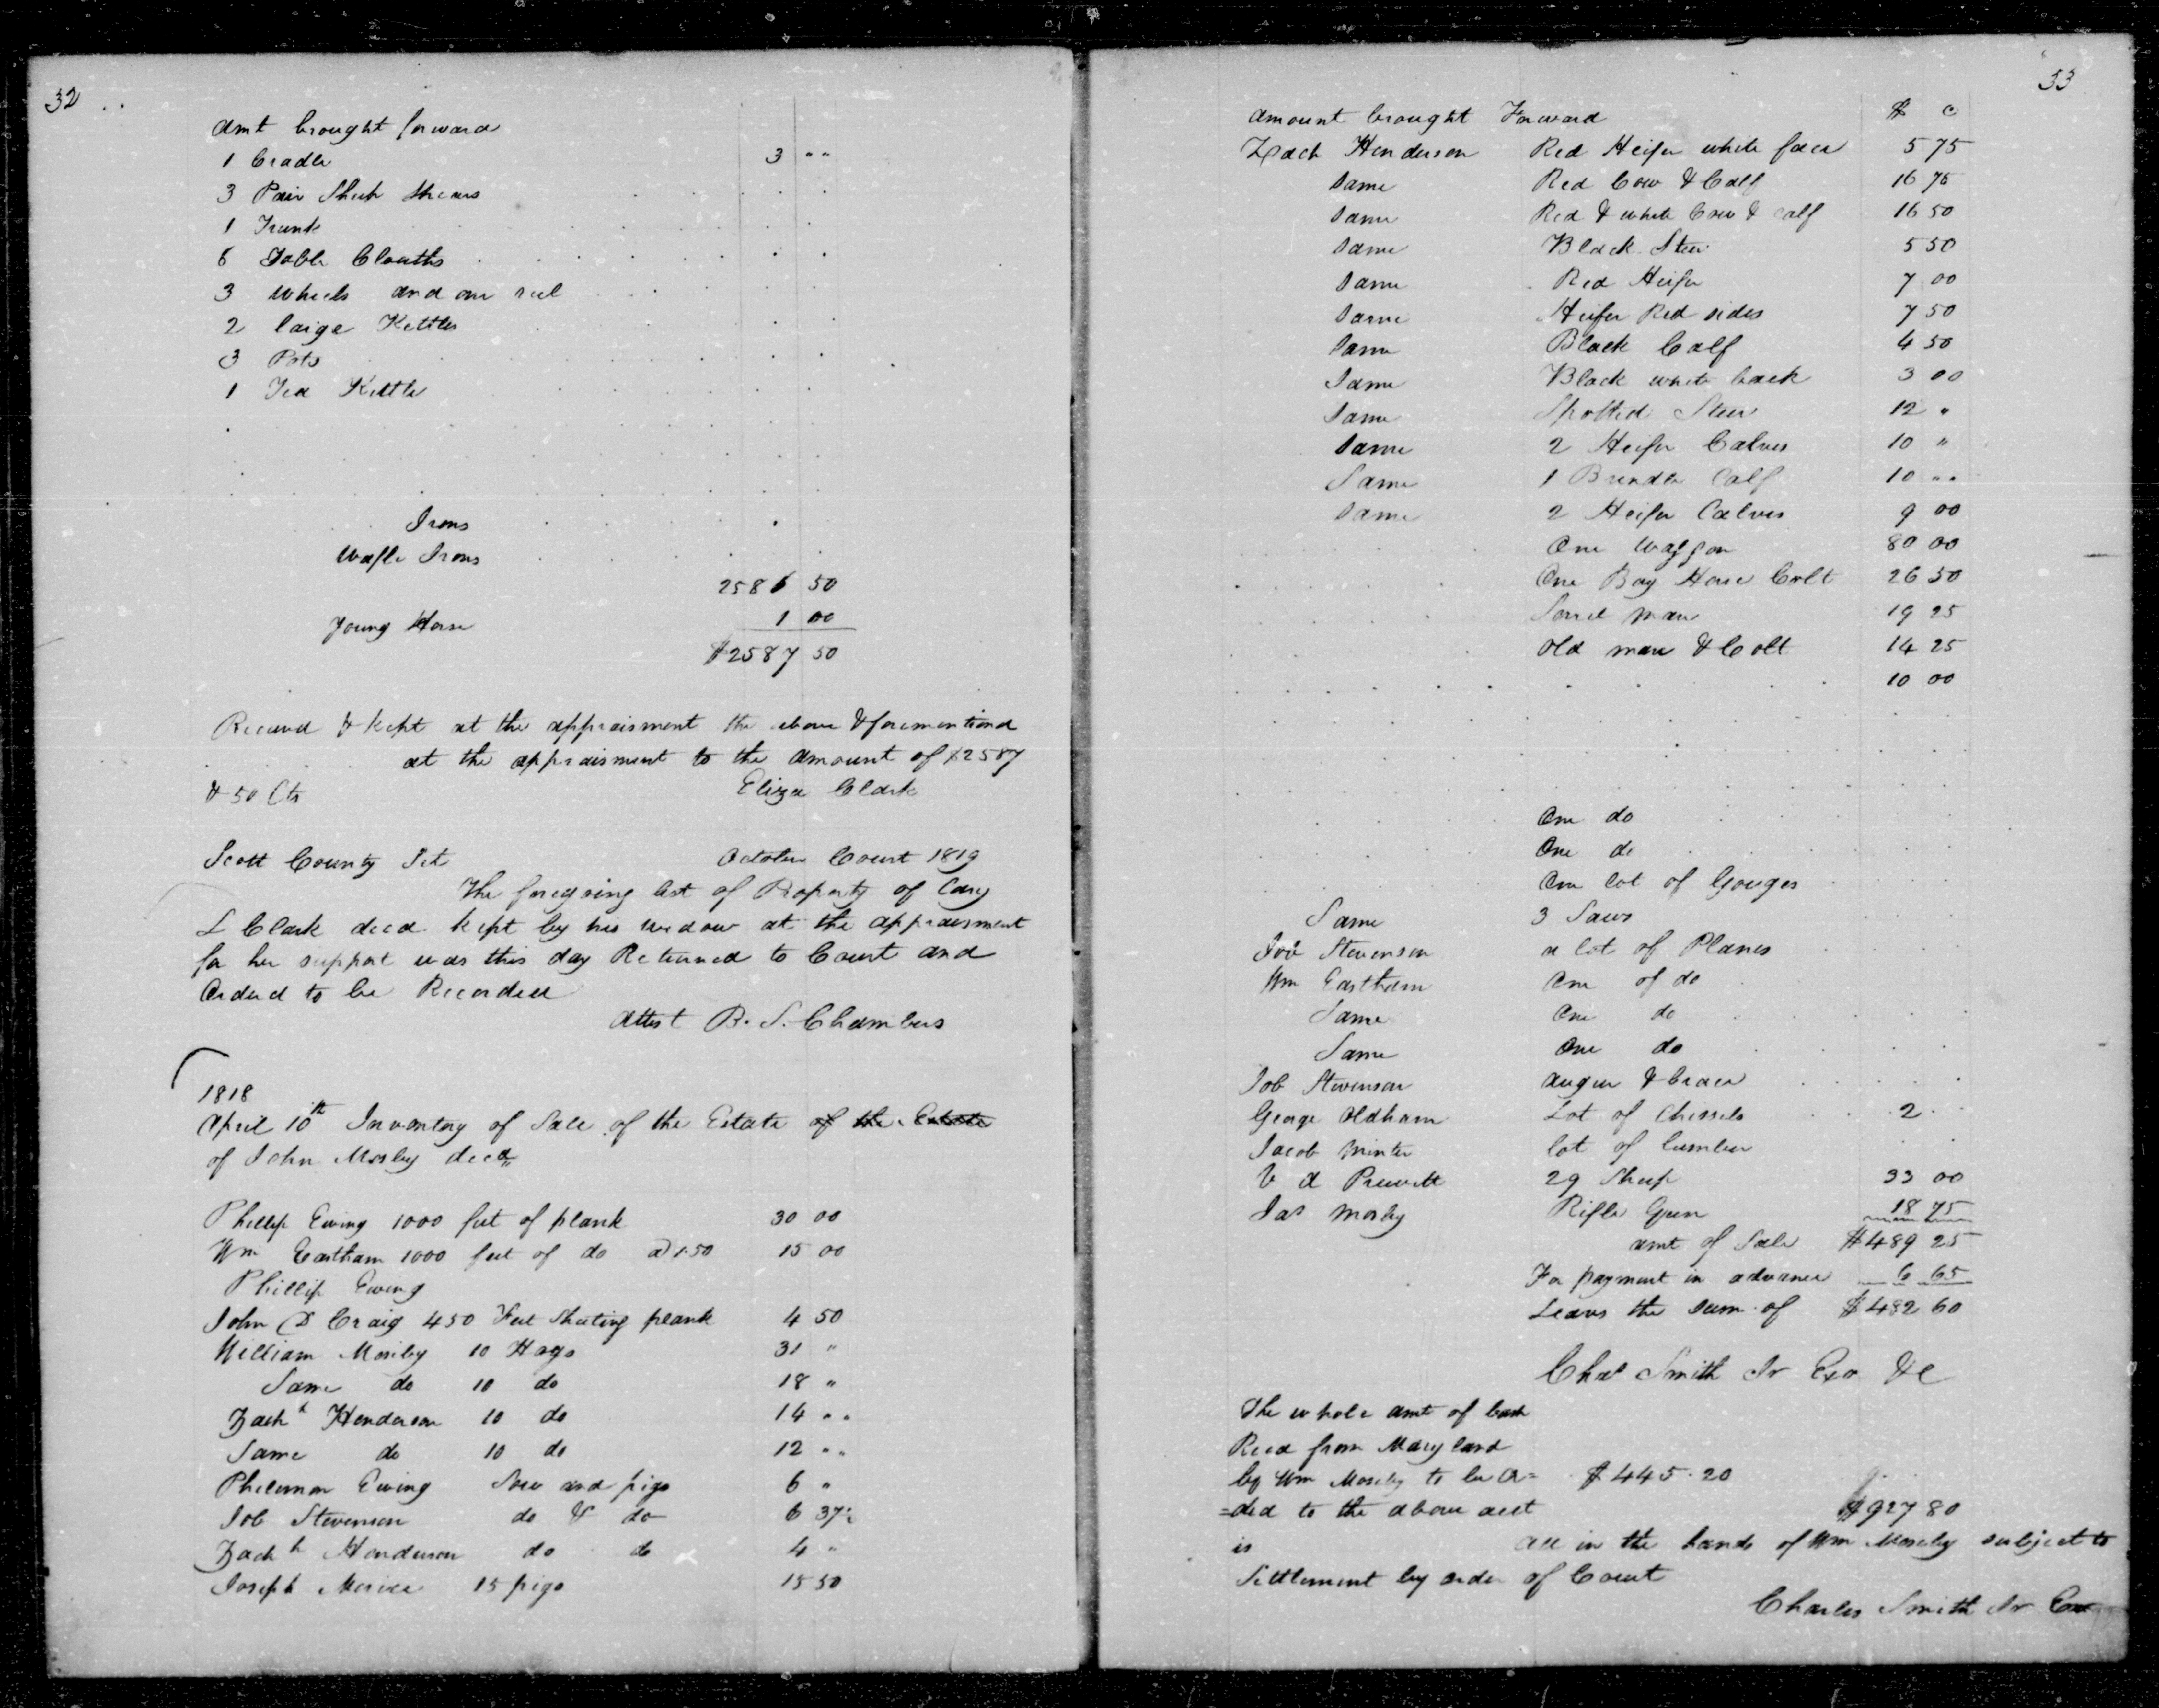 32
Amt brought forward
1 Cradle 3 " "
3 Pair Sheep Shears
1 Trunk
6 Table Clouths
3 Wheels and one reel
2 large Kettles
3 Pots
1 Tea Kettle
Irons
Wafle Irons
2586 50
Young Horse 1 00
$2587 50
Received & Kept at the appraisment the above & forementiond
at the appraisment to the amount of $2587
& 50 Cts Eliza Clark
Scott County Sct October Court 1819
The foregoing list of Property of Cary
L Clark decd kept by his widow at the appraisment
for her support was this day Returned to Court and
Orderd to be Recorded
Attest B. S. Chambers
1818
April 10th Inventory of Sale of the Estate of the Estate
of John Mosley decd
Phillip Ewing 1000 feet of plank 30 00
Wm Eastham 1000 feet of do a 1.50 15 00
Phillip Ewing
John D Craig 450 Feet Sheeting plank 4 50
William Mosiley 10 Hogs 31 "
Same do 10 do 18 "
Zachh Henderson 10 do 14 " "
Same do 10 do 12 " "
Philemon Ewing Sow and pigs 6 "
Job Stevenson do & do 6 37½
Zachh Henderson do do 4 "
Joseph 15 pigs 15 50
33
Amount brought Forward $ c
Zach Henderson Red Heifer white face 5 75
Same Red Cow & Calf 16 75
Same Red & white Cow & calf 16 50
Same Black Steer 5 50
Same Red Heifer 7 00
Same Heifer Red sides 7 50
Same Black Calf 4 50
Same Black white back 3 00
Same Spotted Steer 12 "
Same 2 Heifer Calves 10 "
Same 1 Brindle Calf 10 " "
Same 2 Heifer Calves 9 00
One Waggon 80 00
One Bay Horse Colt 26 50
Sorrel mare 19 25
Old mare & Colt 14 25
10 00
One do
One do
One lot of Gouges
Same 3 Saws
Job Stevenson a lot of Planes
Wm Eastham One of do
Same One do
Same One do
Job Stevenson auger & brace
George Oldham Lot of Chissels 2
Jacob Minter lot of lumber
V d Prewett 29 Sheep 33 00
Jas Mosley Rifle Gun 18 75
amt of Sale $489 25
For payment in advance 6 65
Leaves the sum of $482 60
Chas Smith Jr Exor &c
The whole amt of Cash
Recd from Maryland
by Wm Mosely to be a= $445.20
=ded to the above acct $927 80
is all in the hands of Wm Mosely subject to
Settlement by order of Court
Charles Smith Jr Exor